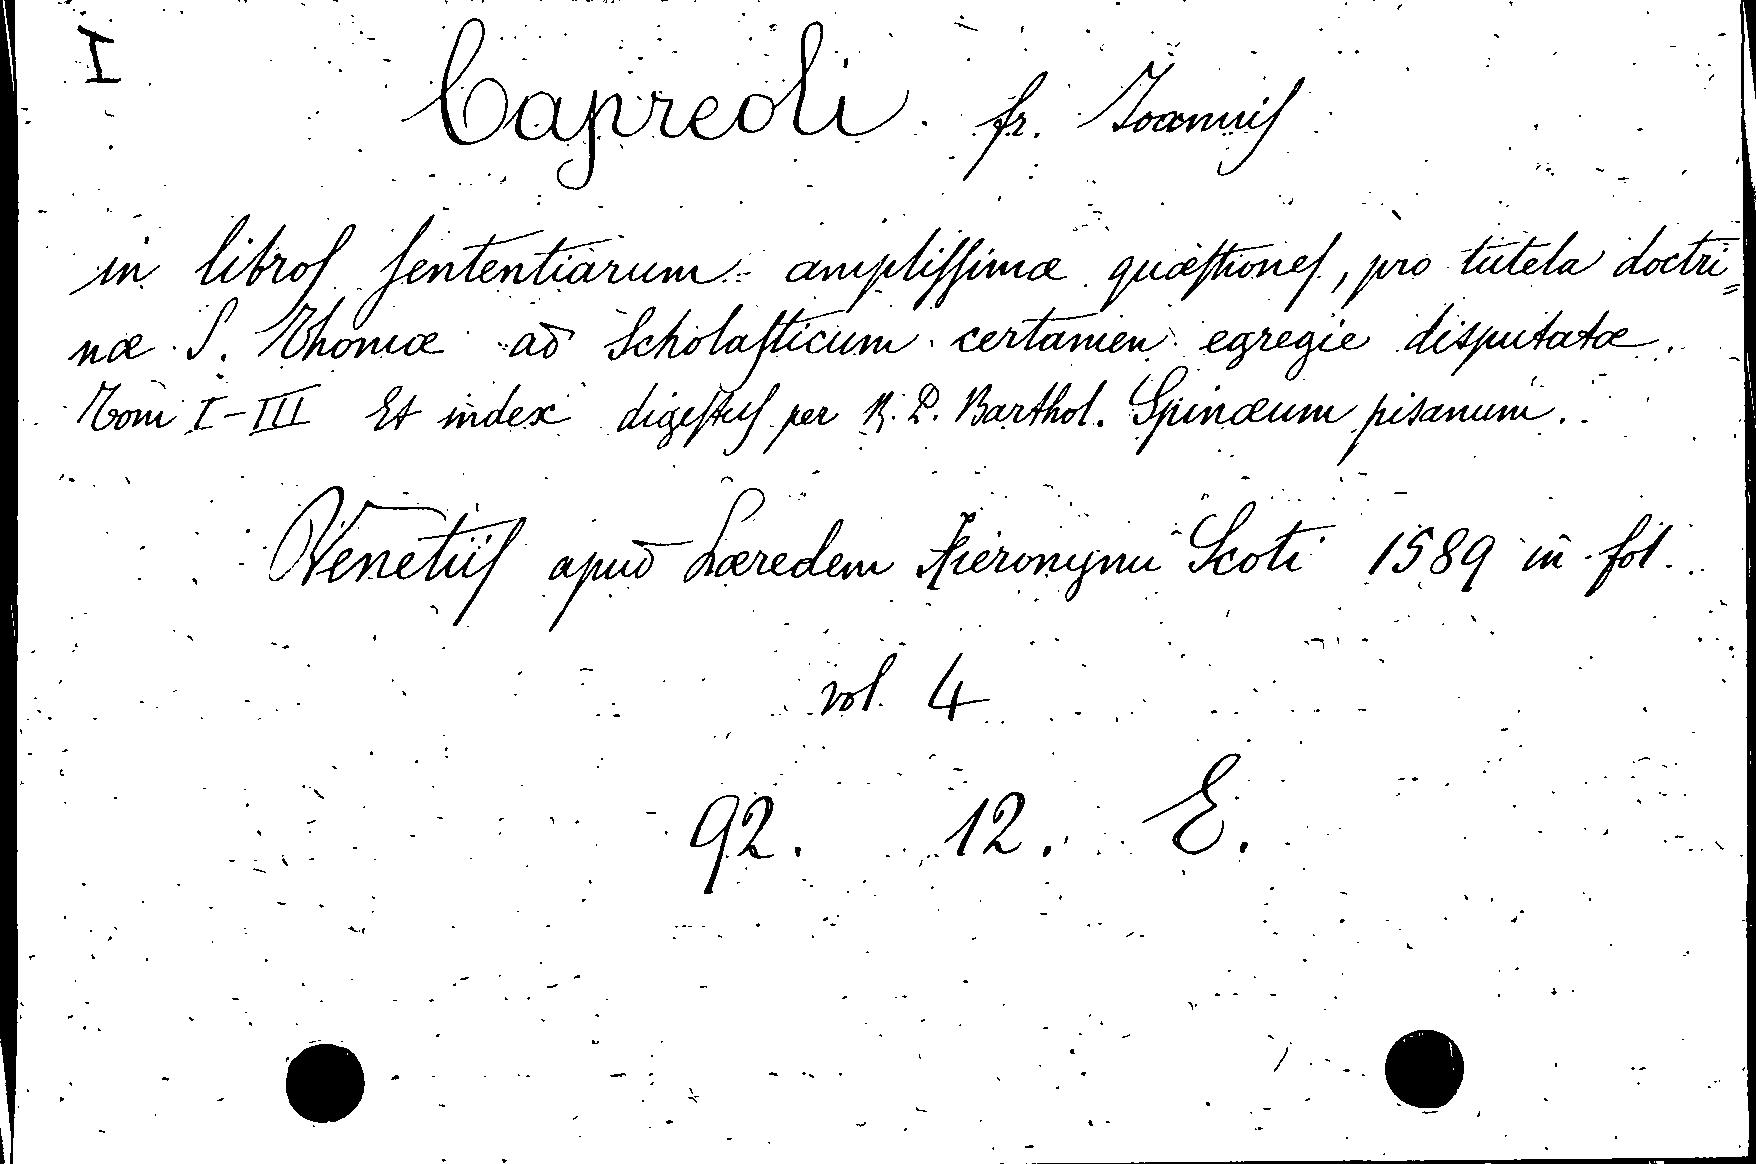 I
Capreoli fr. Joannis
in libros sententiarum amplissimæ quæstiones, pro tutela doctri=
næ S. Thomæ ad Scholasticum certamen egregie disputatæ.
Tomi I-III Et index digestus per R. P. Barthol. Spinæum pisanum.
Venetiis apud Hæredem Hieronymi Scoti 1589 in fol.
vol. 4
92. 12. E.